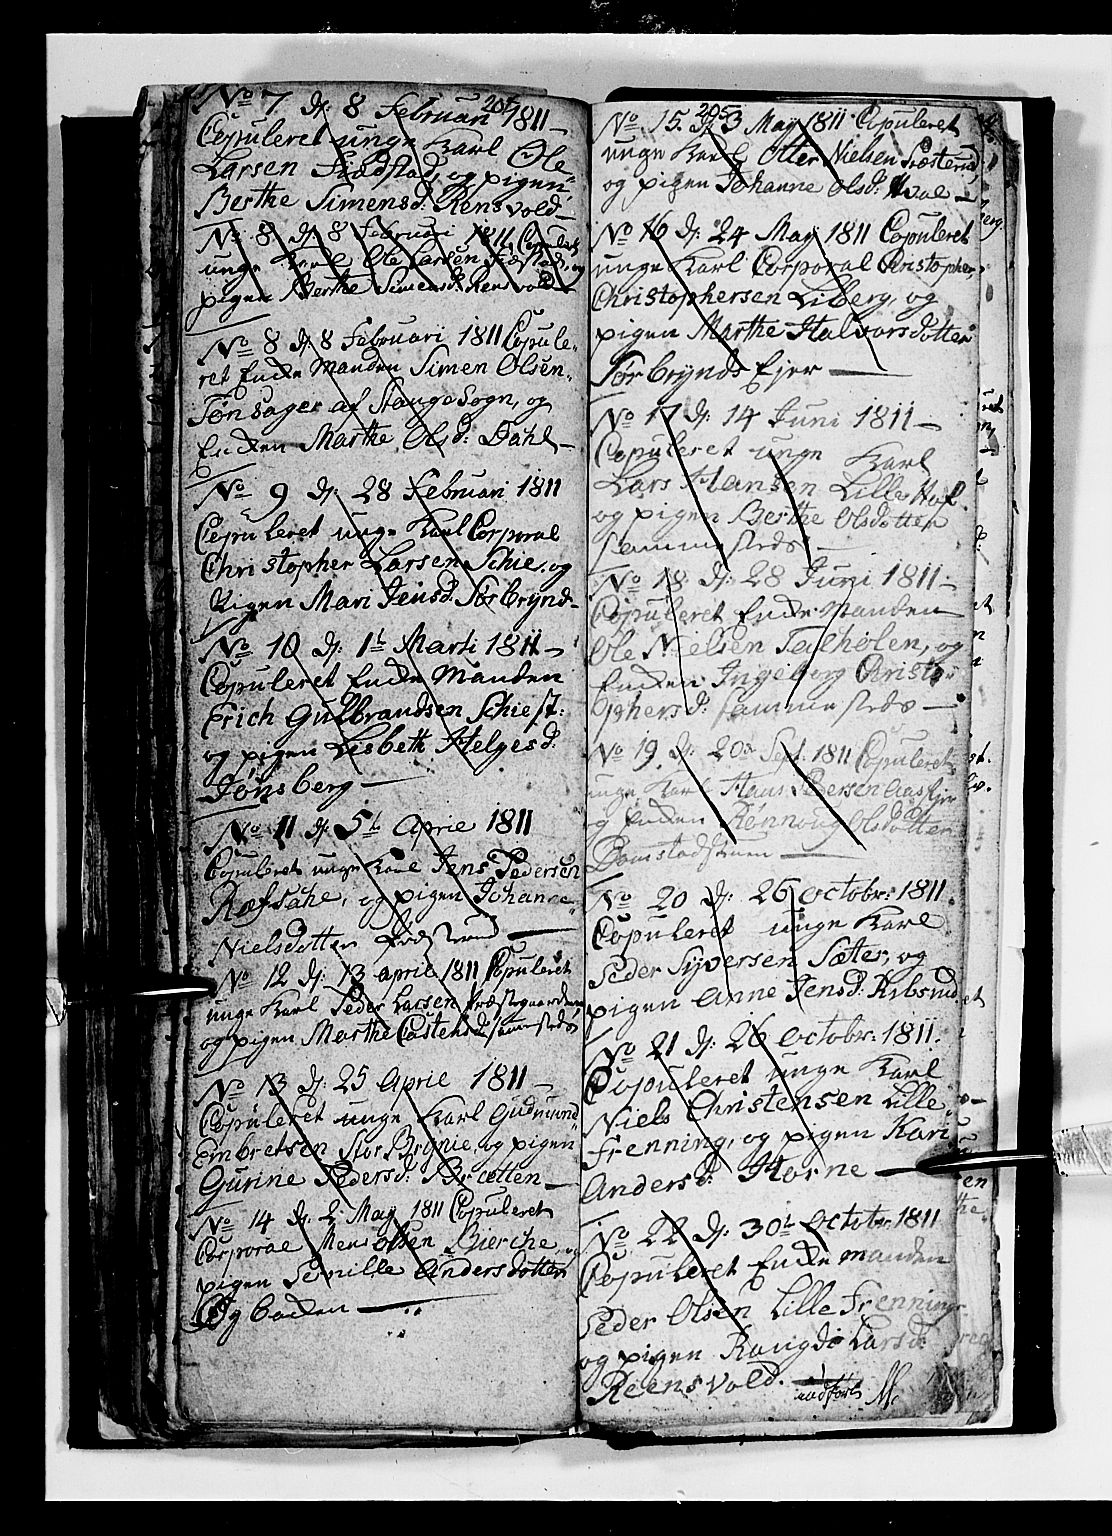 No 7 d: 8 Februari 1811 –
204
Copuleret unge Karl Ole
Larsen Frædstad, og pigen
Berthe Simensd: Rensvold –
No 8 d: 8 Februari 1811 Copuleret
unge Karl Ole Larsen Frædstad, og
pigen Berthe Simensd: Rensvold –
No 8 d: 8 Februari 1811 Copule-
ret Enke Manden Simen Olsen
Tønsager af Stange Sogn, og
Enken Marthe Olsd: Dahl –
No 9 d: 28 Februari 1811
Copuleret unge Karl Corporal
Christopher Larsen Schie, og
Pigen Mari Jensd: Stor Brynd –
No 10 d: 1t Marti 1811 –
Copuleret Enke Manden
Erich Gulbrandsen Schie
og pigen Lisbeth Helgesd:
Jønsberg –
No 11 d: 5t April 1811
Copuleret unge Karl Jens Pedersen
Ræfsahe, og pigen Johanne
Nielsdotter
No 12 d: 13 april 1811 Copuleret
unge Karl Peder Larsen
og pigen Marthe Castensd: sammesteds
No 13 d: 25 April 1811 –
Copuleret unge Karl Gudmund
Embretsen Stor Brynie, og pigen
Gurine Pedersd: Brætten –
No 14 d: 2 May 1811 Copuleret
Corporal Mens Olsen Bierche, og
pigen Pernille Andersdotter
Og backen –
No 15. d: 3 May 1811 Copuleret
205
unge Karl Otter Nielsen
og pigen Johanne Olsd: Hval –
No 16 d: 24 May 1811 Copuleret
unge Karl Corporal Christopher
Christophersen Liberg, og
pigen Marthe Halvorsdotter
Stor brynds Ejer –
No 17 d: 14 Juni 1811 –
Copuleret unge Karl
Lars Hansen Lille Hof
og pigen Berthe Olsdotter
sammesteds –
No 18 d: 28 Juni 1811 –
Copuleret Enke Manden
Ole Nielsen Talholen, og
Enken Ingeborg Christo-
phersd: sammesteds –
No 19. d: 20de Sept. 1811 Copuleret
unge Karl Hans Pedersen
og Enken Rønnoug Olsdotter
Bomstadstuen –
No 20 d: 26 octobr: 1811.
Copuleret unge Karl
Peder Syversen Sæter, og
pigen Anne Jensd: Ribsrud
No 21 d: 26 octobr: 1811.
Copuleret unge Karl
Niels Christensen Lille
Frenning, og pigen Kari
Andersd: Horne –
No 22 d: 30t Octobr 1811
Copuleret Enke manden
Peder Olsen Lille Frenning
og pigen Rangdi Larsd:
Reensvold. –